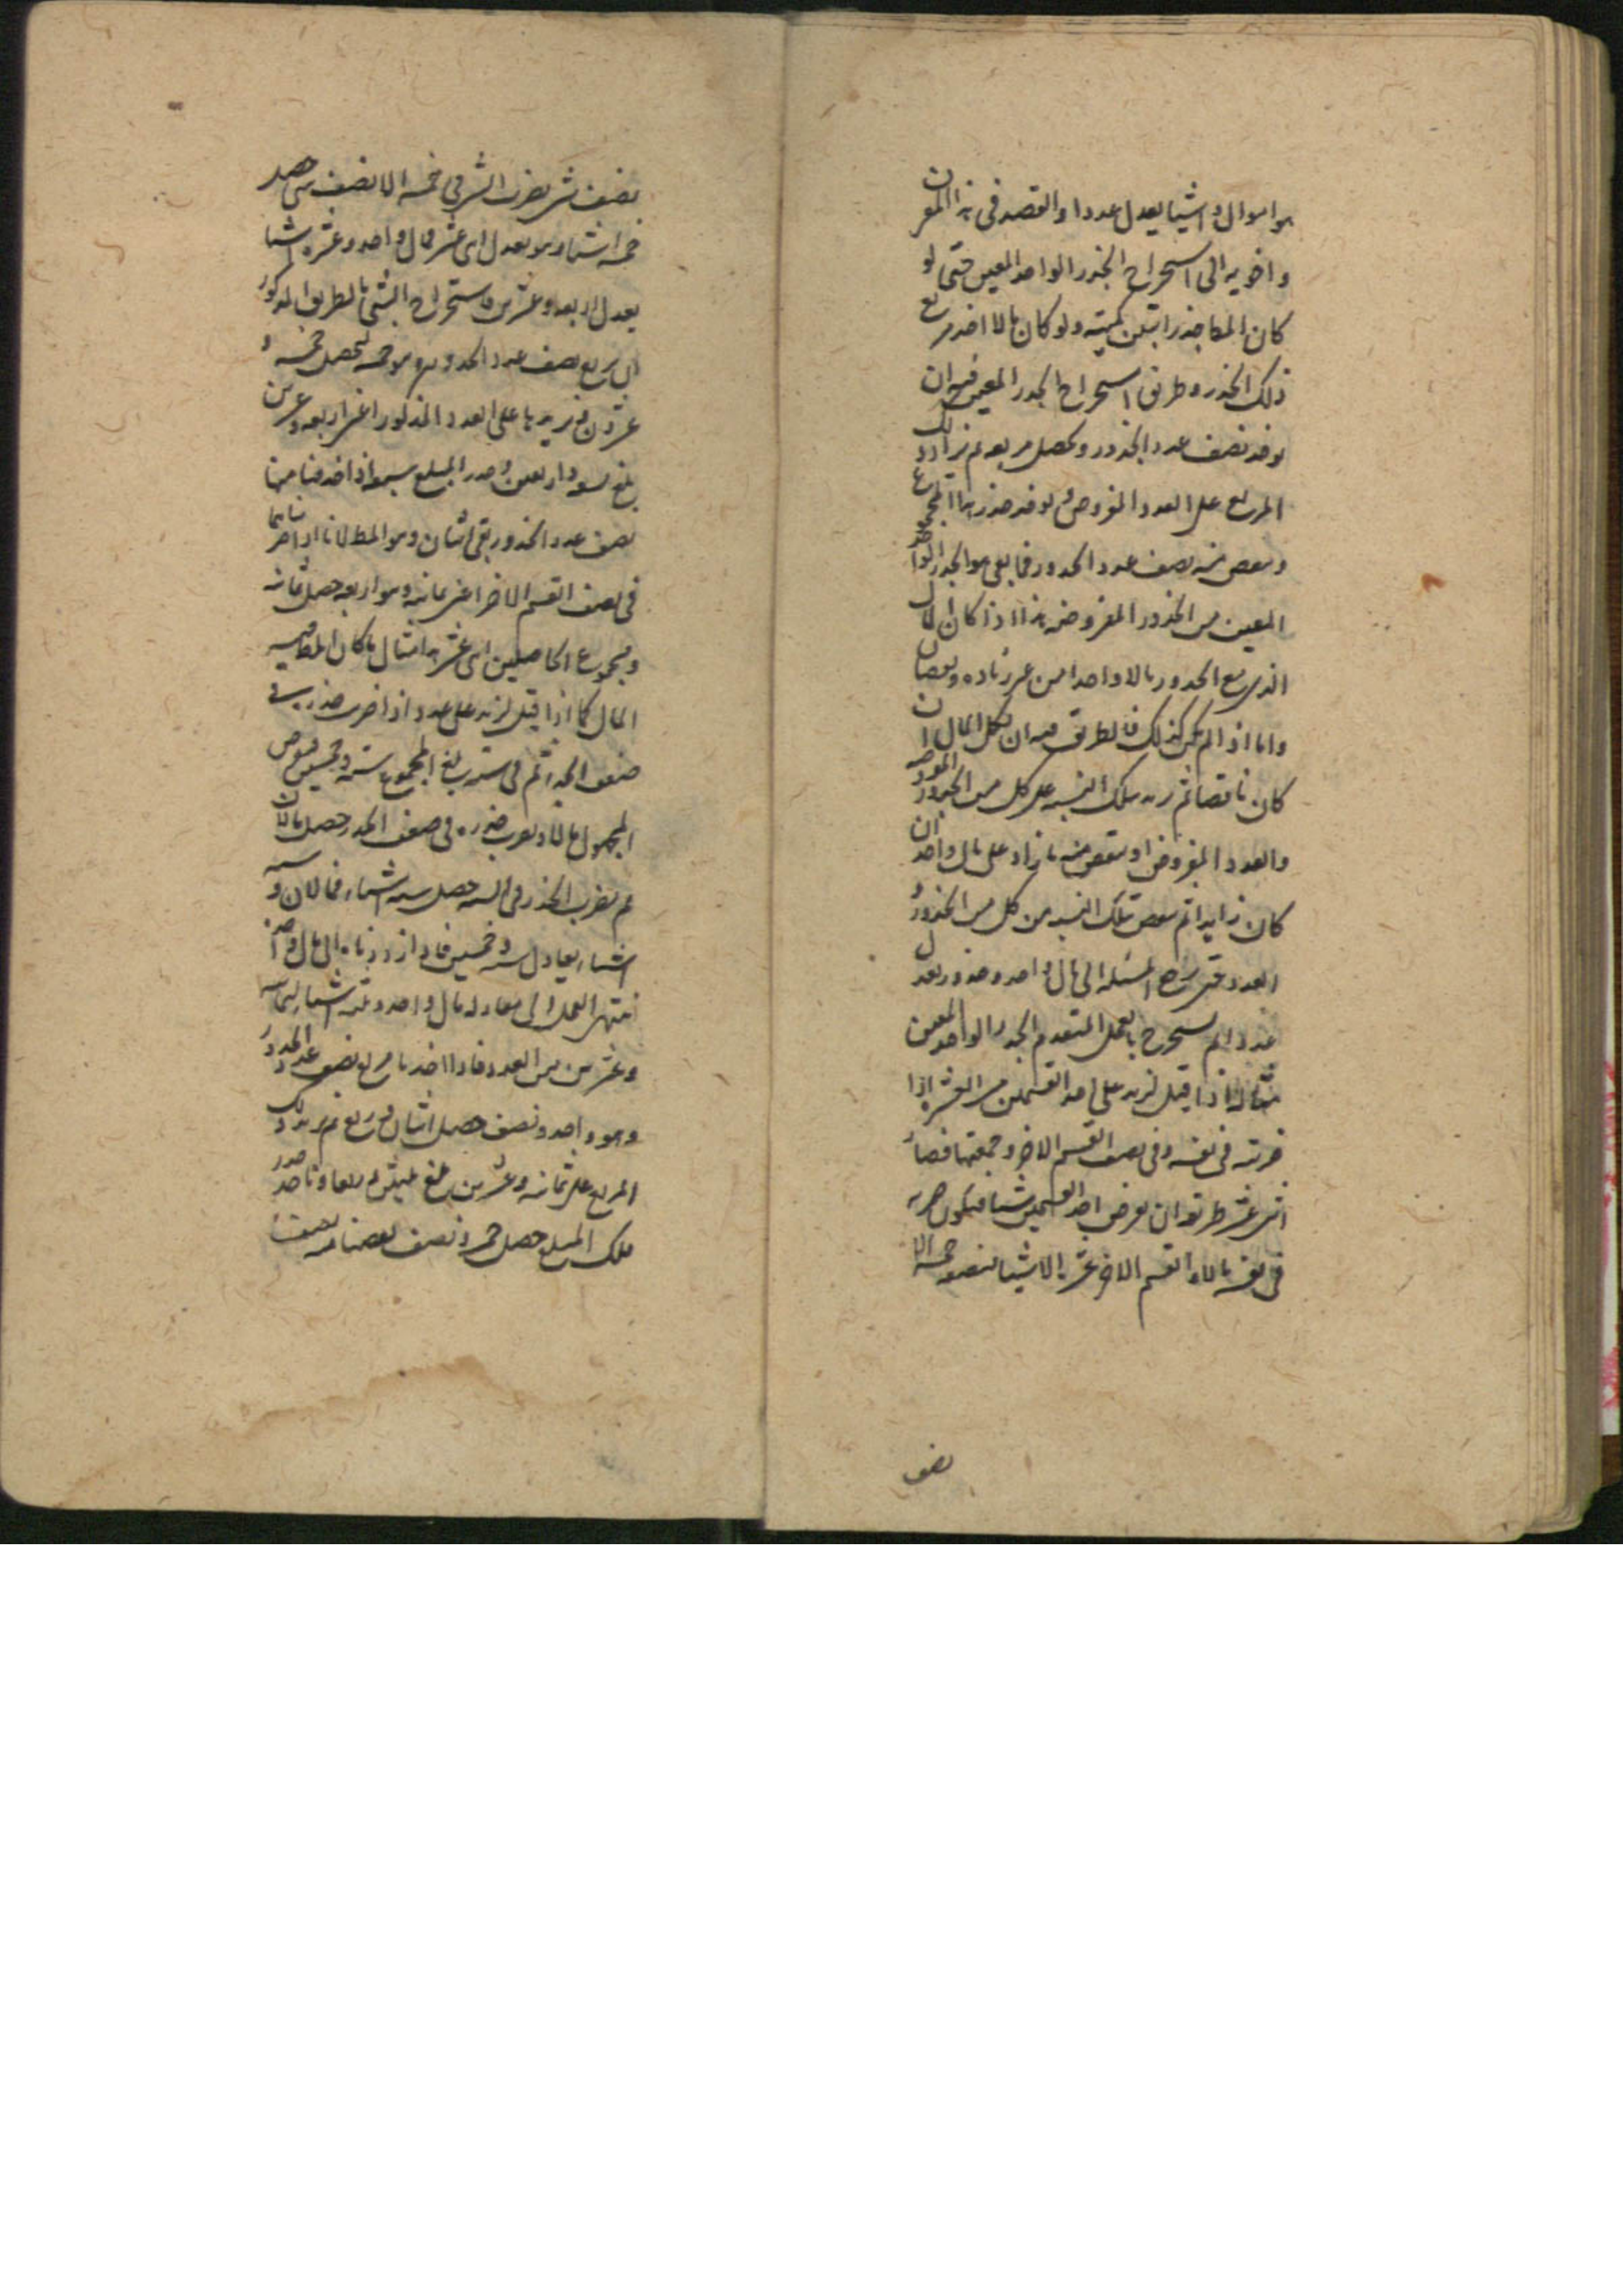 هو اموال واشيا يعدل عددا والقصد فى هذا المقرن
واخويه الى استخراج الجذر الواحد المعين حتى لو
كان المط جذرا تبين كميته ولو كان مالا اخذ مربع
ذلك الجذر وطريق استخراج الجذر المعين فيه ان
يوخذ نصف عدد الجذور ويحصل مربعه ثم يزاد ذلك
المربع على العدد المفروض ويوخذ جذر هذا المجموع
وينقص منه نصف عدد الجذور فما بقى هو الجذر الواحد
المعين من الجذور المفروضه هذا اذا كان المال
الذى مع الجذور مالا واحدا من غير زياده ونقصان
واما اذا لم يكن كذلك فالطريق فيه ان يكمل المال ان
كان ناقصا ثم يزيد بتلك النسبه على كل من الجذور المفروضه
والعدد المفروض او ينقص منه ما زاد على مال واحد ان
كان زايدا ثم ينقص بتلك النسبه من كل من الجذور و
العدد حتى يرجع المسئله الى مال واحد وجذور يعدل
عددا ثم يستخرج بالعمل المتقدم الجذر الواحد المعين
مثاله اذا قيل لزيد على احد القسمين من العشره اذا
ضربته فى نفسه وفى نصف القسم الاخر وجمعتها فصار
اثنى عشر طريقه ان يفرض احد القسمين شيا فيكون ضربه
فى نفسه مالا والقسم الاخر عشره الا شيا فنصفه خمسه الا
نصف
نصف شى يضرب الشى فى خمسه الا نصف شى حصل
خمسه اشيا وهو يعدل اثنى عشر فمال واحد وعشره اشيا
يعدل اربعه وعشرين فاستخراج الشى بالطريق المذكور
ان يربع نصف عدد الجذور وهو خمسه ليحصل خمسه و
عشرون فيزيدها على العدد المذكور اعنى اربعه وعشرين
بلغ تسعه واربعين وجذر المبلغ سبعه اذا اخذنا منها
نصف عدد الجذور بقى اثنان وهو المط لانا اذا ضربناهما
فى نصف القسم الاخر اعنى ثمانيه وهو اربعه حصل ثمانيه
ومجموع الحاصلين اثنى عشر هذا مثال ما كان المط فيه
المال كما اذا قيل لزيد على عدد اذا ضرب جذره فى
ضعف الجذر ثم فى سته بلغ المجموع سته وخمسين فيفرض
المجهول مالا ويضرب جذره فى ضعف الجذر حصل مالان
ثم يضرب الجذر فى السته حصل سته اشياء فمالان وسته
اشياء يعادل سته وخمسين فاذا رددناه الى مال واحد
انتهى العمل الى معادله مال واحد وثلثه اشياء لثمانيه
وعشرين من العدد فاذا اخذنا مربع نصف عدد الجذور
وهو واحد ونصف حصل اثنان وربع ثم يزيد ذلك
المربع على ثمانيه وعشرين بلغ ثلثين وربعا وناخذ جذر
ذلك المبلغ حصل خمسه ونصف نقصنا منه نصف